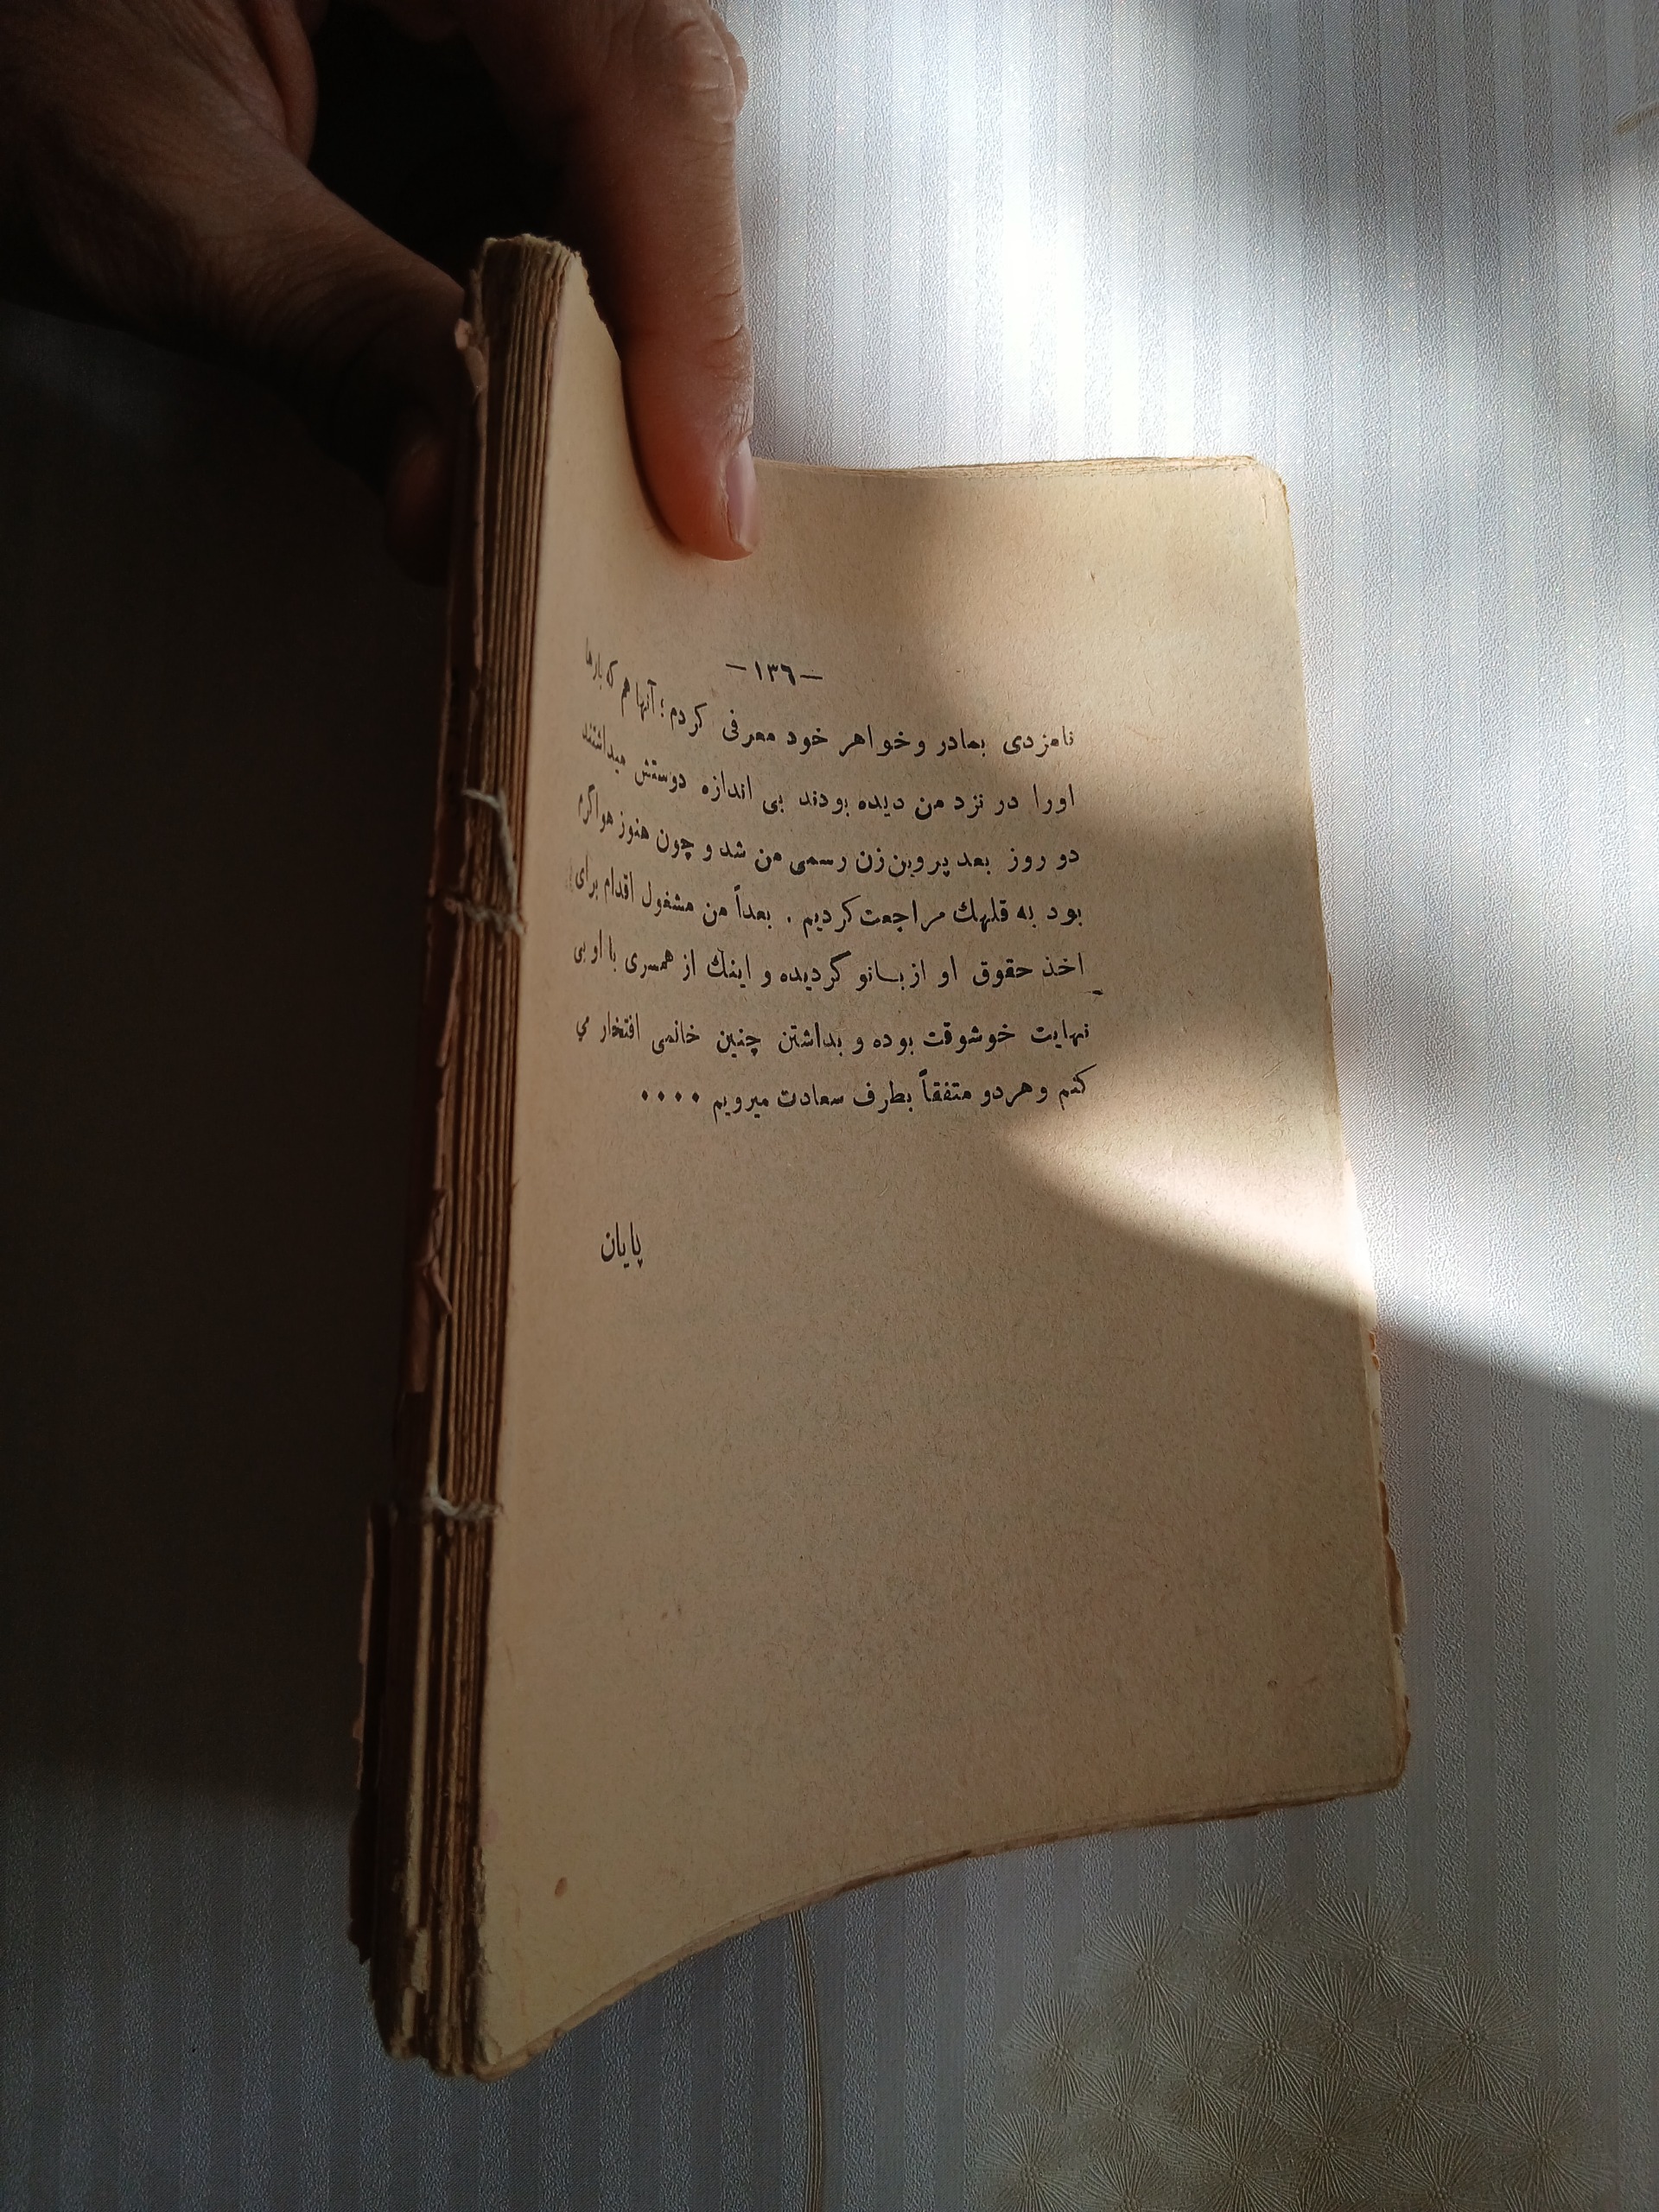 —۱۳٦—
نامزدی بمادر و خواهر خود معرفی کردم؛ آنها هم که بارها
اورا در نزد من دیده بودند بی اندازه دوستش میداشتند
دو روز بعد پروین زن رسمی من شد و چون هنوز هوا گرم
بود به قلهك مراجعت کردیم . بعداً من مشغول اقدام برای
اخذ حقوق او از بانو گردیده و اینك از همسری با او بی
نهایت خوشوقت بوده و بداشتن چنین خانمی افتخار می
کنم و هر دو متفقاً بطرف سعادت میرویم ۰۰۰۰
پایان